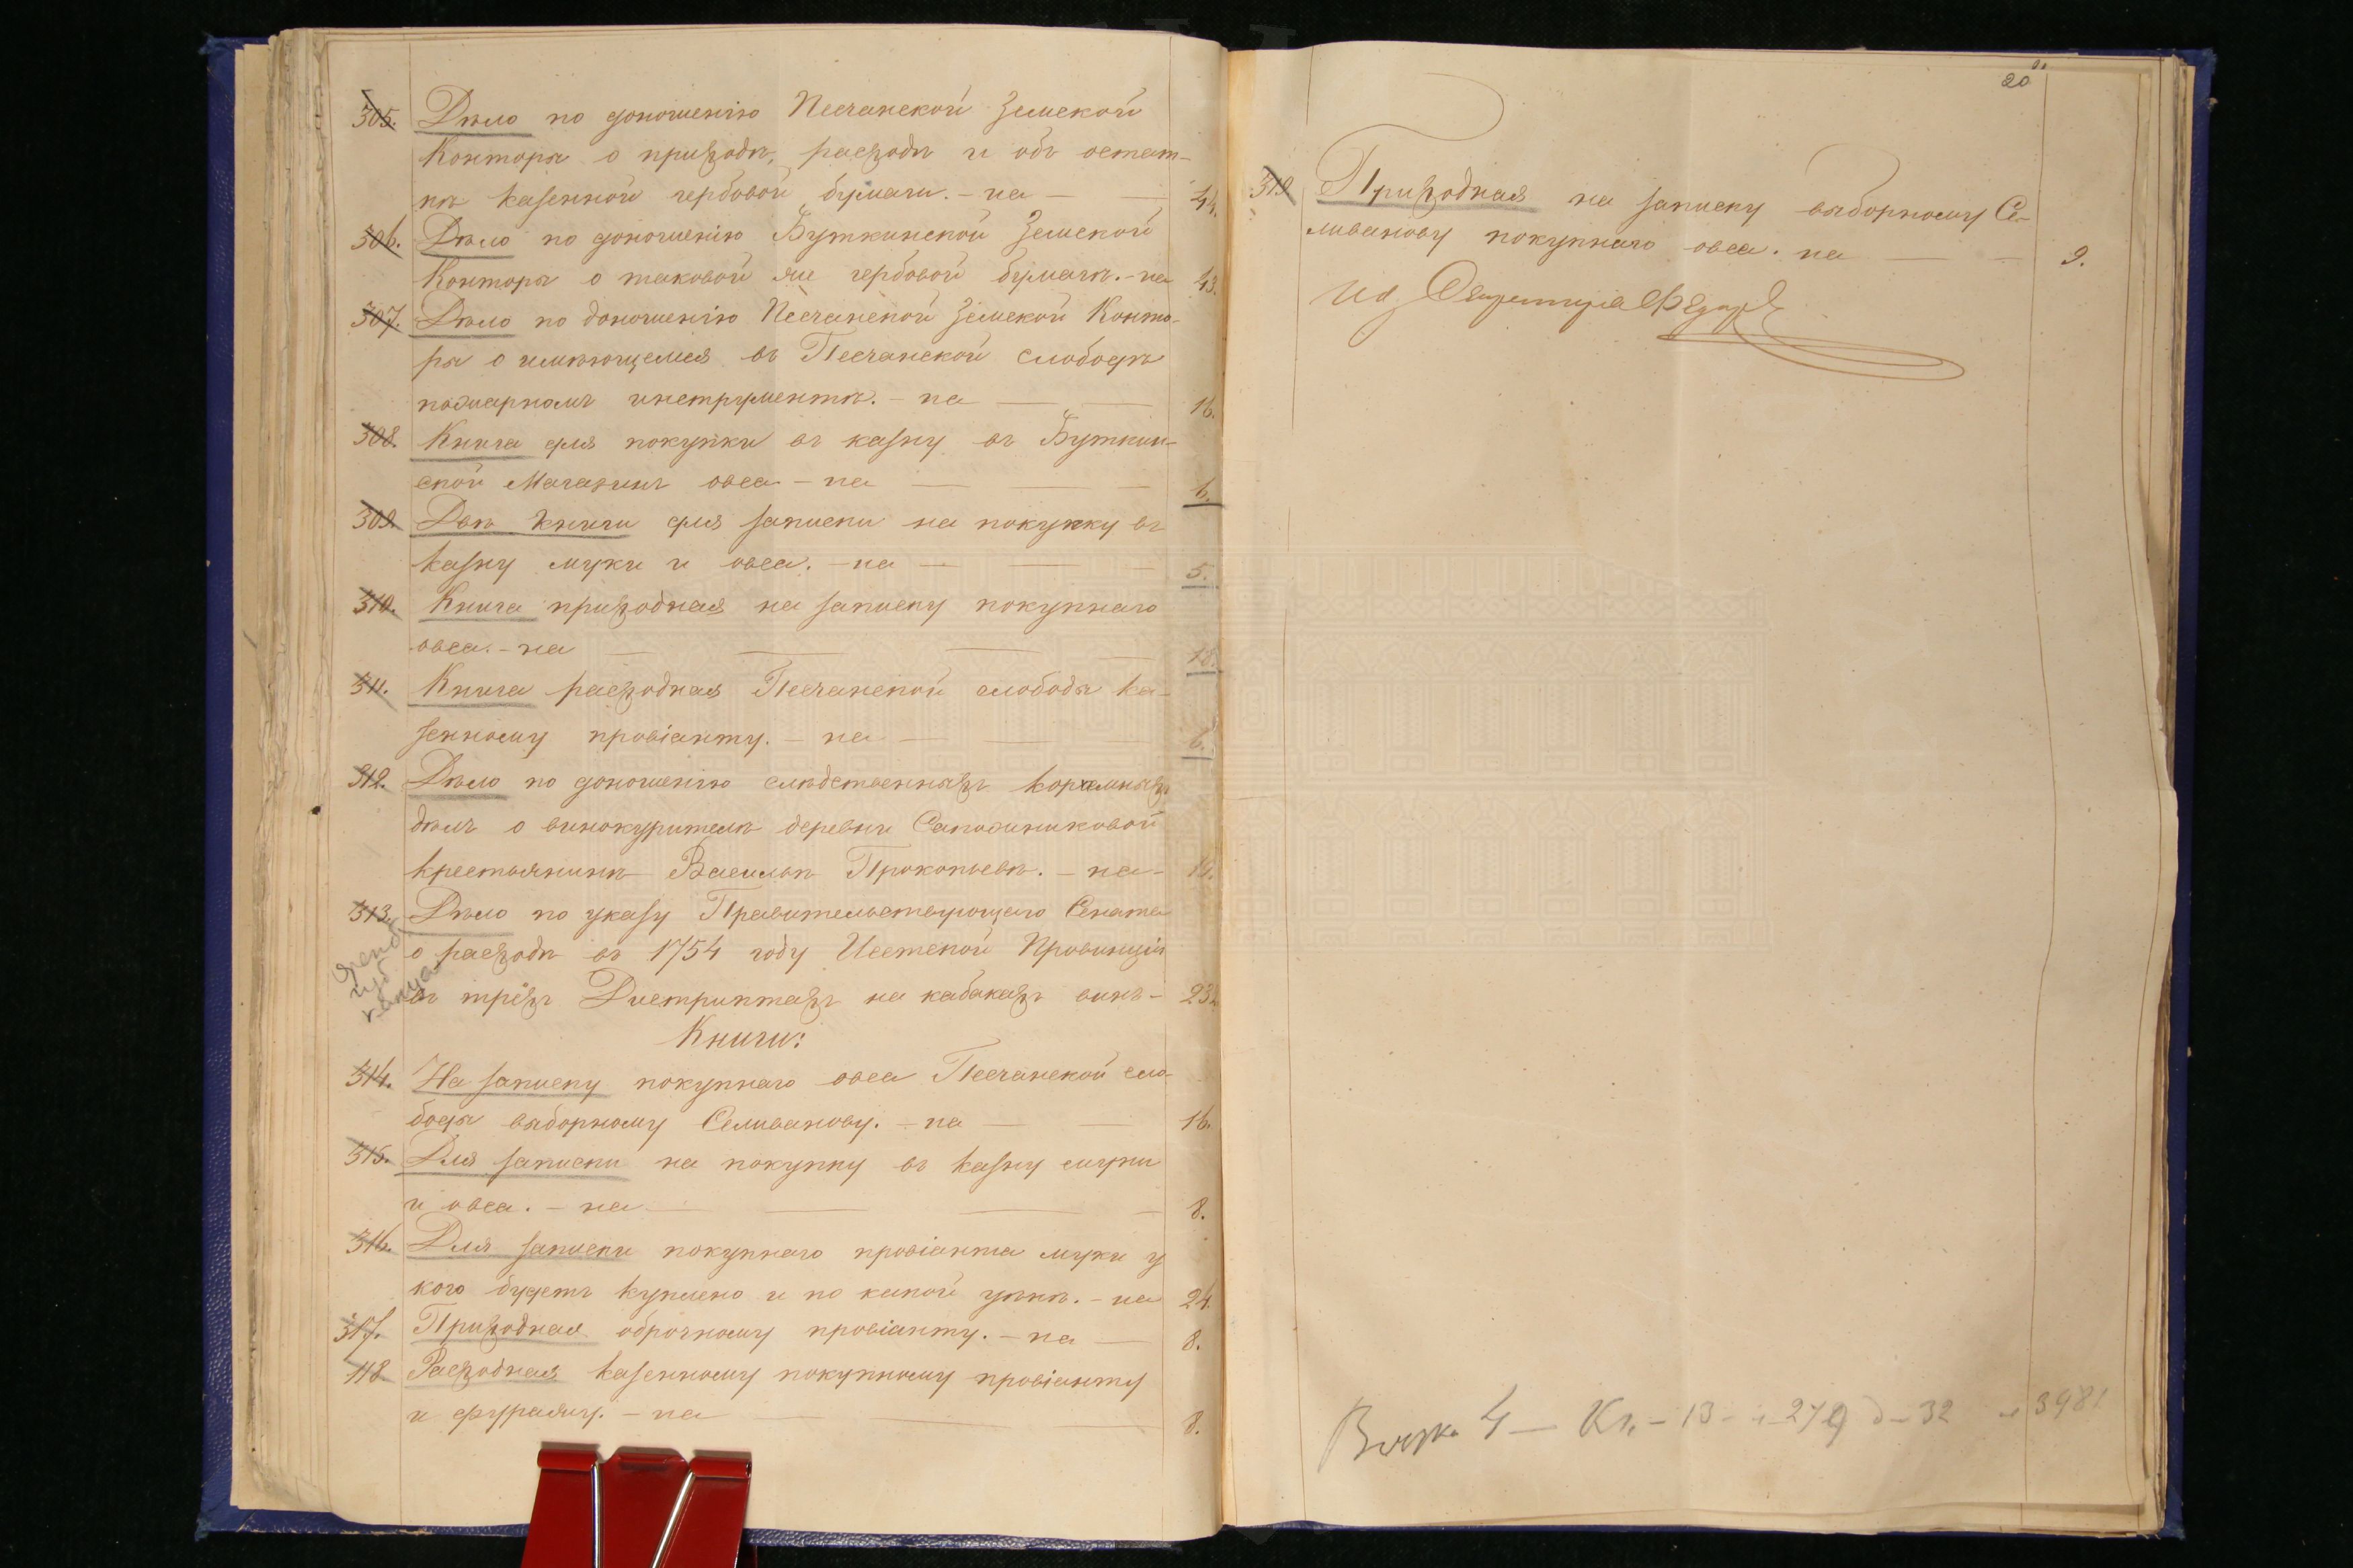 305. Дѣло по доношенію Песчанской Земской
Конторы о приходѣ, расходѣ и объ остат-
кѣ казенной гербовой бумаги. – на — — 44.
306. Дѣло по доношенію Буткинской Земской
Конторы о таковой же гербовой бумагѣ. – на 43.
307. Дѣло по доношенію Песчанской Земской Конто-
ры о имѣющемся въ Песчанской слободѣ
пожарномъ инструментѣ. – на — — 16.
308. Книга для покупки въ казну въ Буткин-
ской Магазинъ овса – на — — — 6.
309. Двѣ книги для записки на покупку въ
казну муки и овса. – на — — — 5.
310. Книга приходная на записку покупнаго
овса. – на — — — —
311. Книга расходная Песчанской слободы ка-
зенному провіанту. – на — — 6.
312. Дѣло по доношенію слѣдственныхъ корчемныхъ
дѣлъ о винокурителѣ деревни Сапожниковой
крестьянинѣ Васильѣ Прокопьевѣ. – на –
313. Дѣло по указу Правительствующаго Сената
о расходѣ въ 1754 году Исетской Провинціи
въ трёхъ Дистриктахъ на кабакахъ винъ – 23
Книги:
314. На записку покупнаго овса Песчанской сло-
боды выборному Селиванову. – на — — 16.
315. Для записки на покупку въ казну муки
и овса. – на — — — — 8.
316. Для записки покупнаго провіанта муки у
кого будетъ куплено и по какой цѣнѣ. – на 24.
317. Приходная оброчному провіанту. – на — 8.
118. Расходная казенному покупному провіанту
и фуражу. – на — — — 8.
20
319. Приходная на записку выборному Се-
ливанову покупнаго овса. на — — 9.
4 — – 13 – 279 д – 32 3981